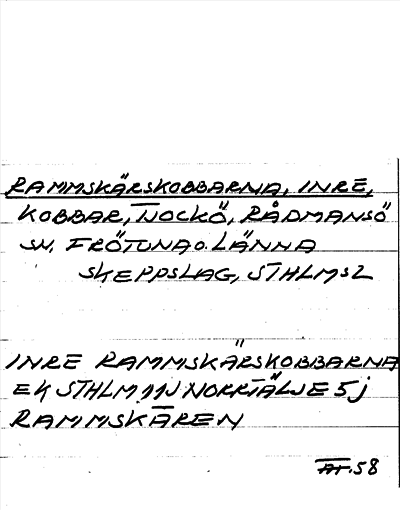 RAMMSKÄRSKOBBARNA, INRE,
KOBBAR, NOCKÖ, RÅDMANSÖ
SN, FRÖTUNA O. LÄNNA
SKEPPSLAG, STHLMS L
INRE RAMMSKÄRSKOBBARNA
EK STHLM 11J NORRTÄLJE 5j
RAMMSKÄREN
AF. 58